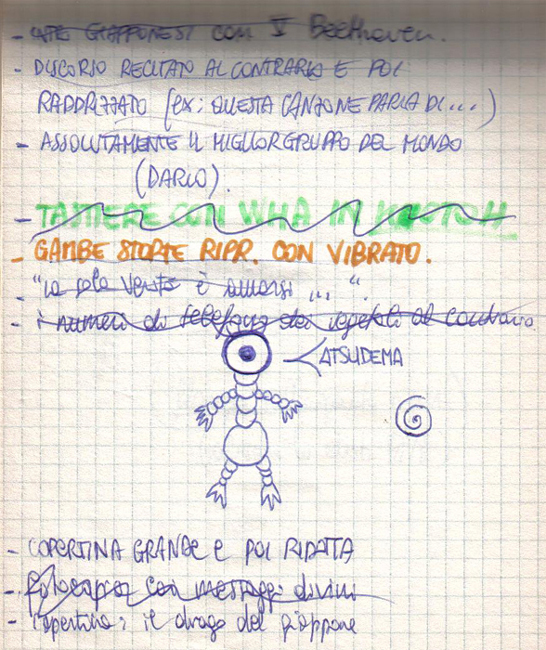 - ARIE GIAPPONESI CON V Beethoven.
- DISCORSO RECITATO AL CONTRARIO E POI
RADDRIZZATO (ex: QUESTA CANZONE PARLA DI...)
- ASSOLUTAMENTE IL MIGLIOR GRUPPO DEL MONDO
(DARIO).
- TASTIERE CON WHA IN
- GAMBE STORTE RIPR. CON VIBRATO.
- "la sola verità è amarsi ...".
- i numeri di telefono dei vegetali al contrario.
ATSUDEMA
- COPERTINA GRANDE E POI RIDOTTA
- fotocopia con messaggi divini
- copertina: il drago del giappone